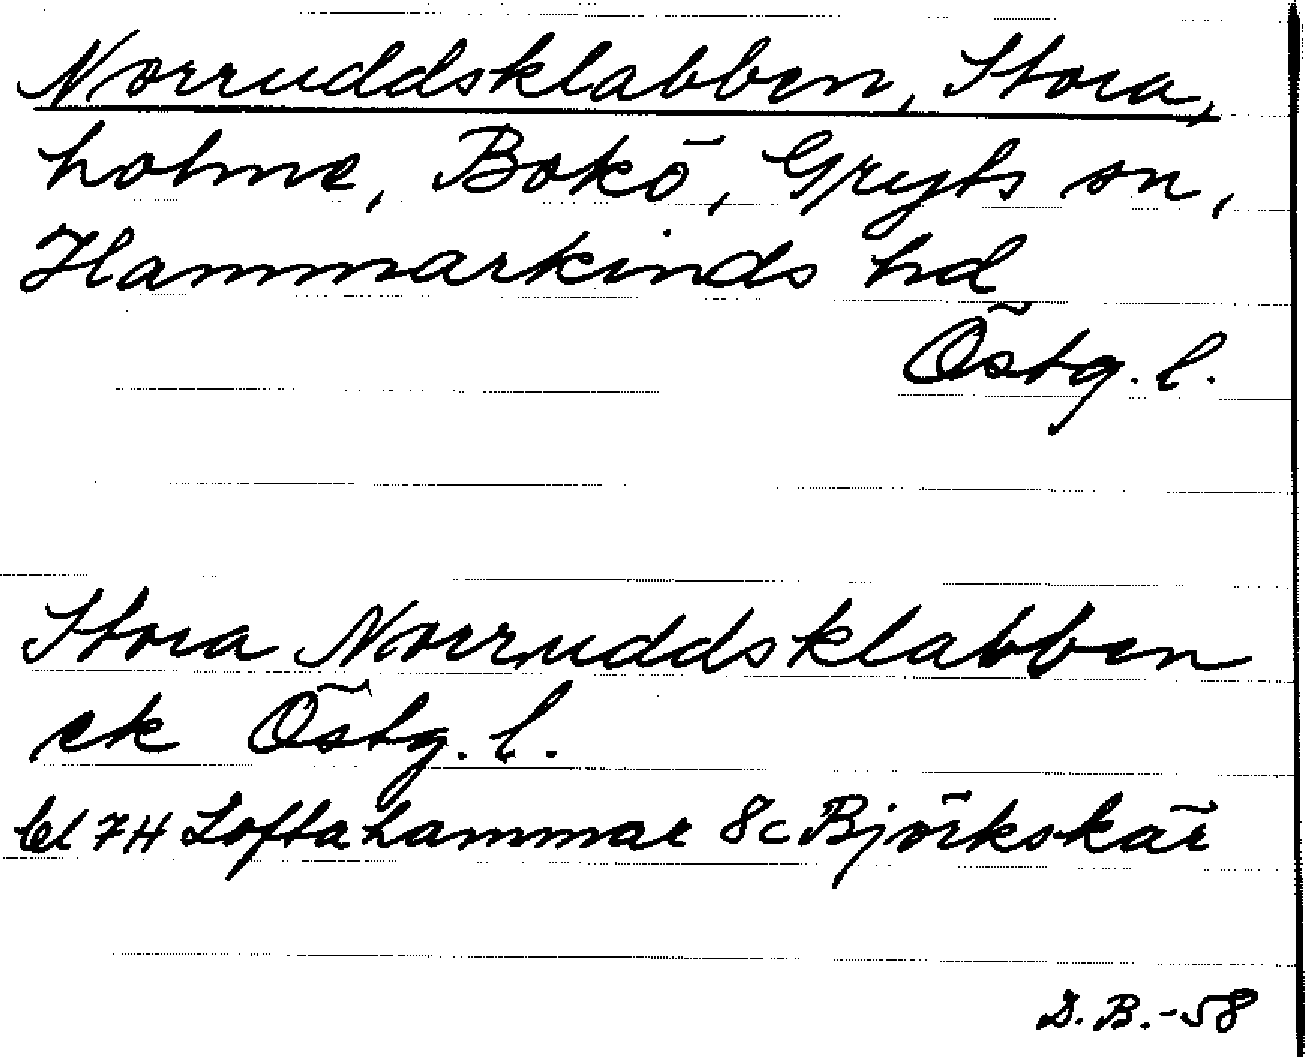 Norruddsklabben, Stora,
holme, Bokö, Gryts sn,
Hammarkinds hd
Östg. l.
Stora Norruddsklabben
ek Östg. l.
bl 7H Loftahammar 8c Björkskär
D. B. -58